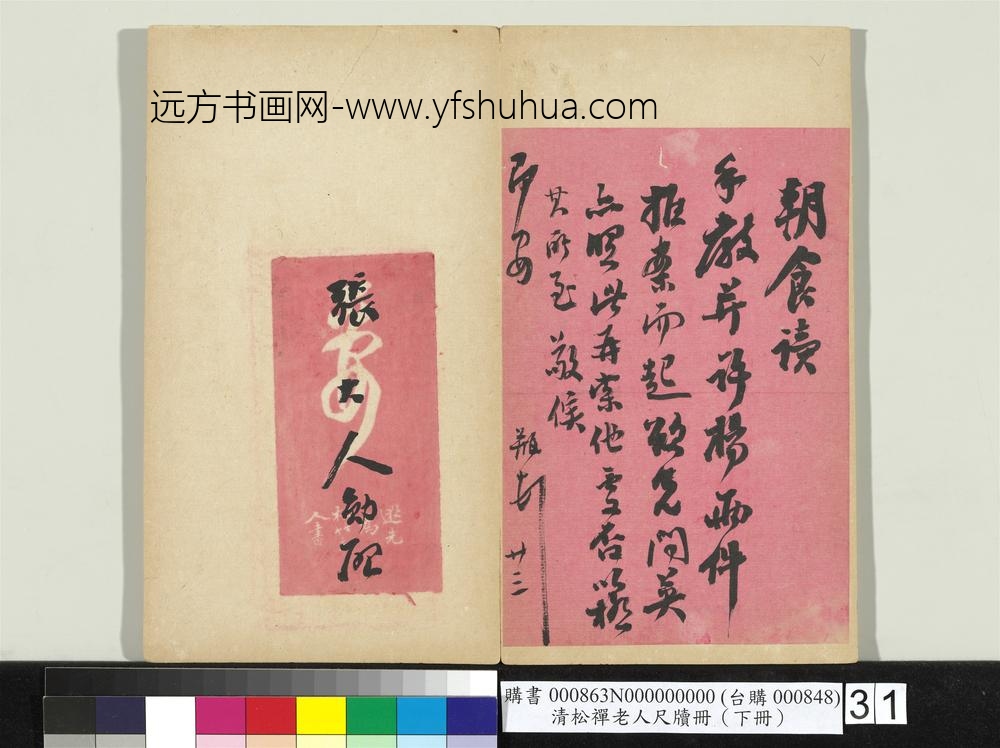 远方书画网-www.yfshuhua.com
朝食讀
手教并許楊兩件
拒案而起欲先問英
照此再案他更否
其所至敬候
即安
瓶 廿三
張大人勛啟
購書 000863N000000000 (台購 000848)
清松禪老人尺牘冊（下冊）
31